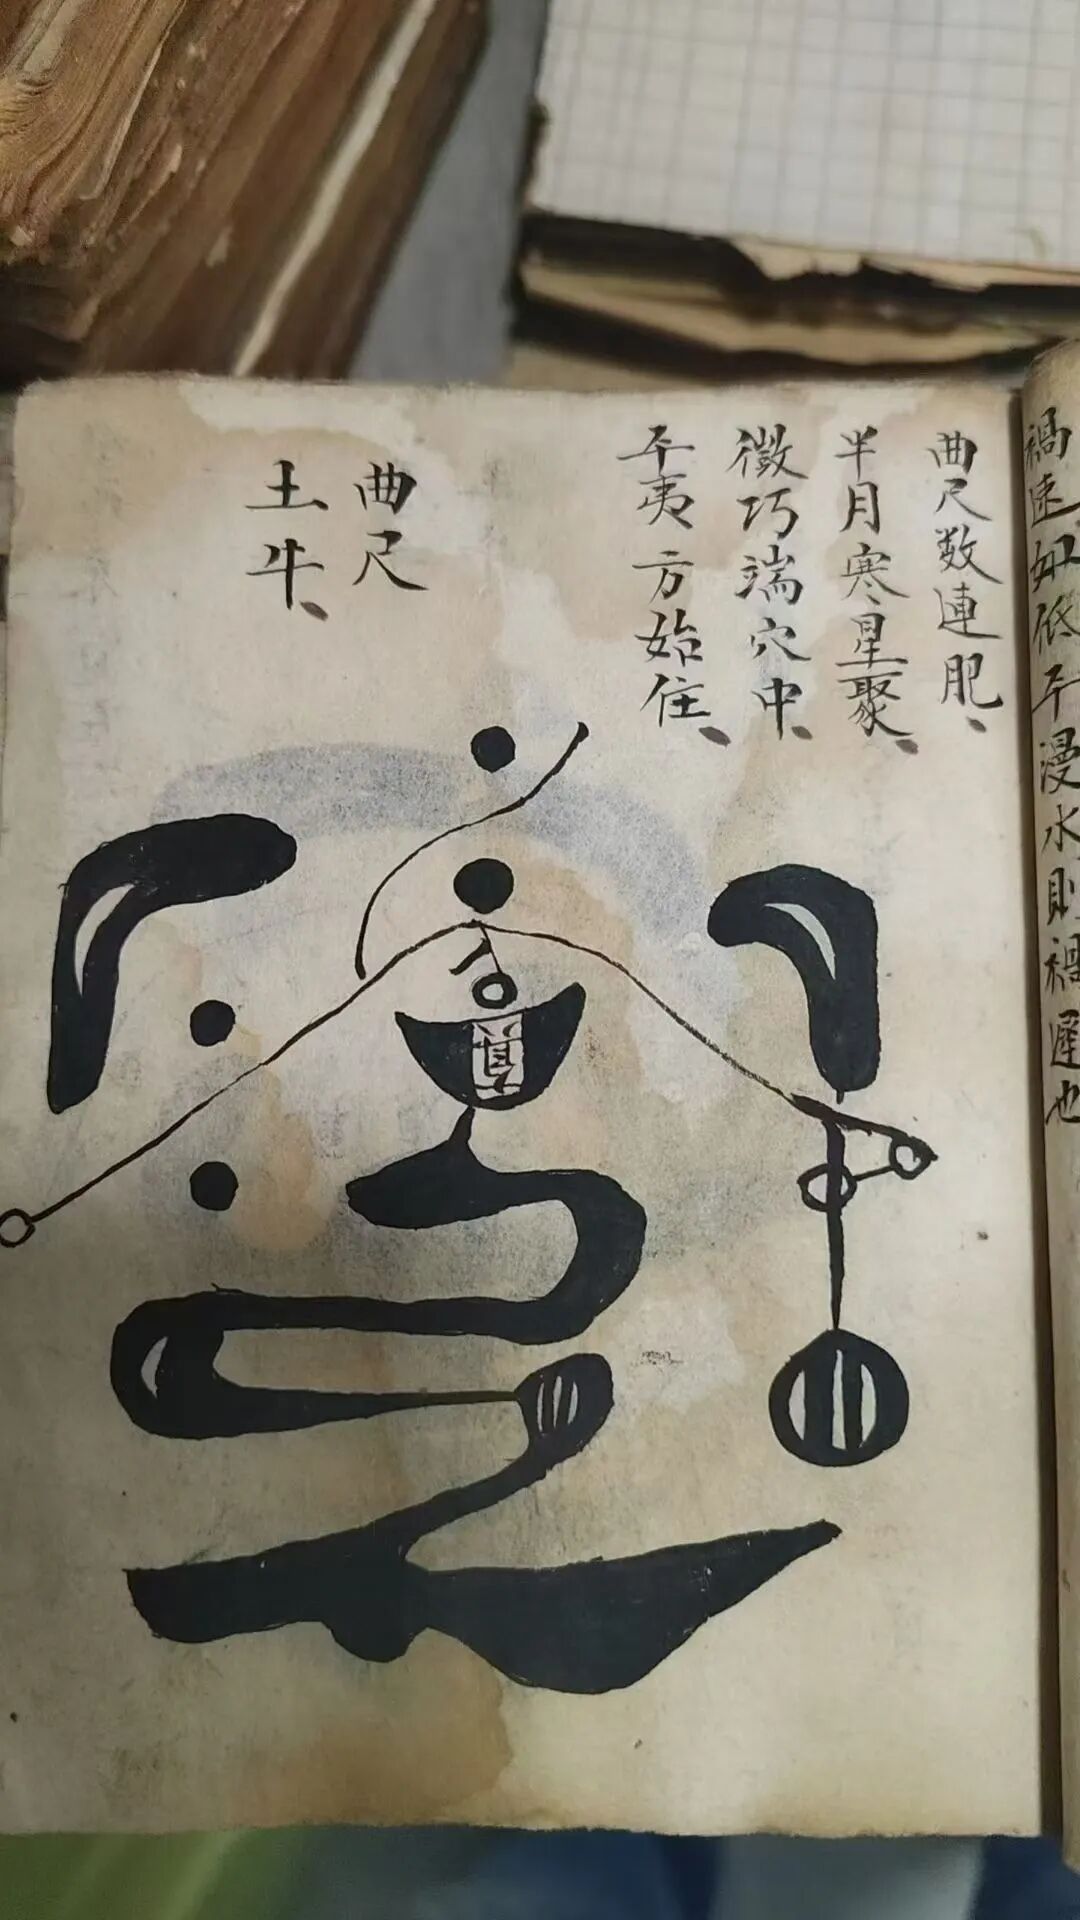 禍速如低平漫水則禍遲也
曲尺数連肥、
半月寒星聚、
微巧端穴中、
平夷方始住、
曲尺
土牛、
真